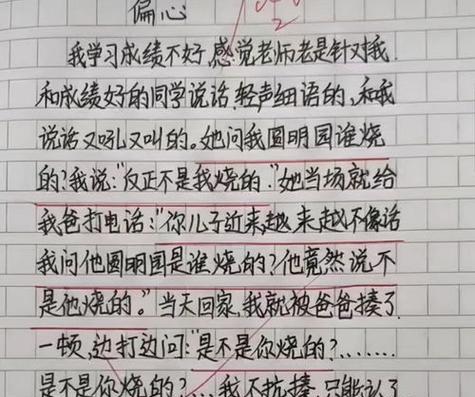 偏心
我学习成绩不好,感觉老师老是针对我.
和成绩好的同学说话,轻声细语的,和我
说话又吼又叫的。她问我圆明园谁烧
的?我说:"反正不是我烧的."她当场就给
我爸打电话:"你儿子近来,越来越不像话
我问他圆明园是谁烧的?他竟然说不
是他烧的。"当天回家,我就被爸爸揍了.
一顿,边打边问:"是不是你烧的?……
是不是你烧的?...我不抗揍,只能认了